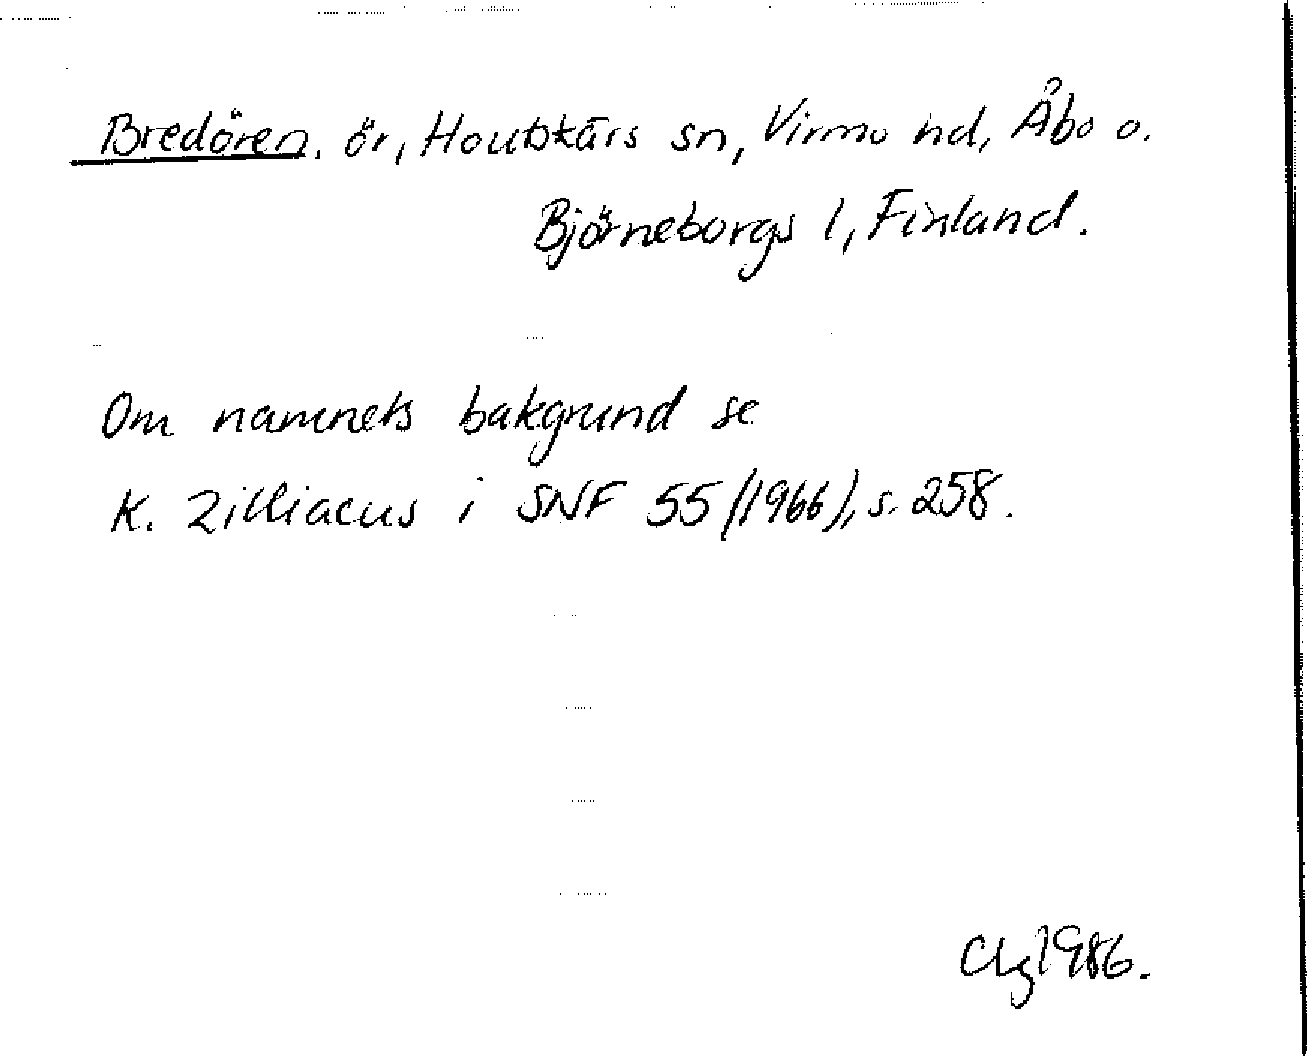 Bredören, ör, Houtskärs sn, Virmo hd, Åbo o.
Björneborgs l, Finland.
Om namnets bakgrund se
K. Zilliacus i SNF 55 (1966), s. 258.
Clg 1986.